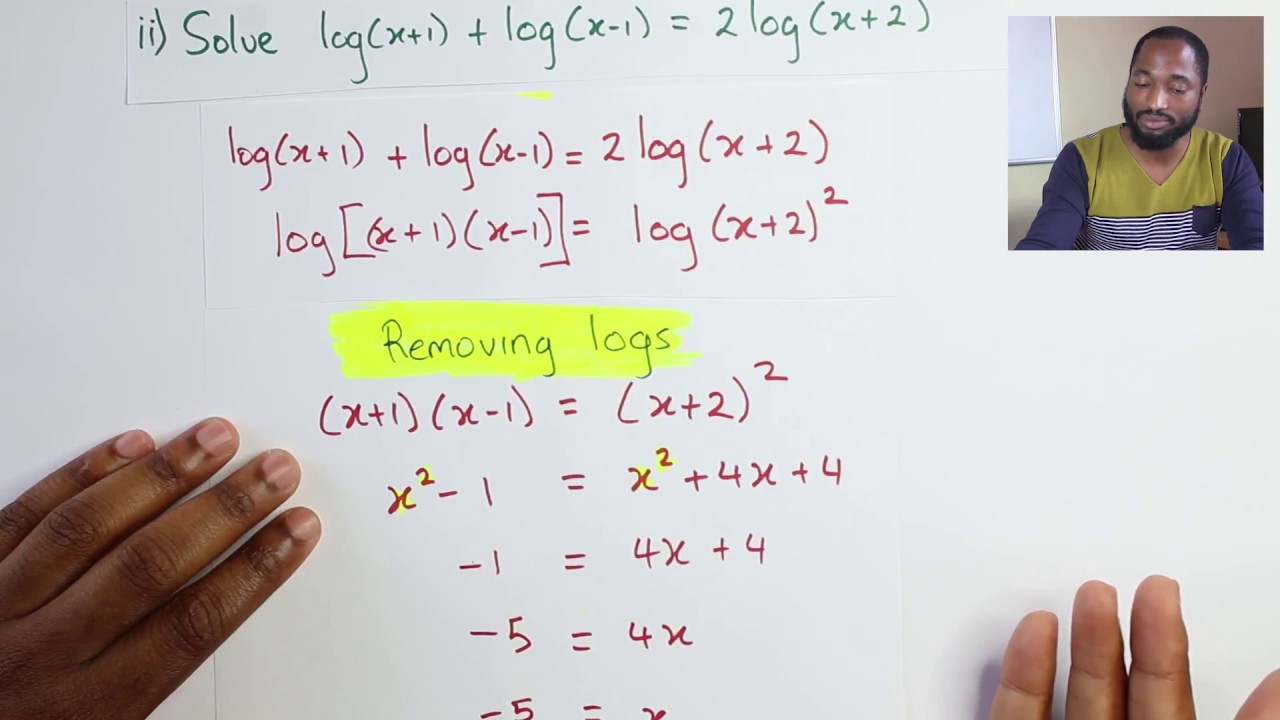 ii) Solve log(x+1) + log(x-1) = 2 log(x+2)
log(x+1) + log(x-1) = 2 log(x+2)
log[(x+1)(x-1)] = log (x+2)²
Removing logs
(x+1)(x-1) = (x+2)²
x² - 1 = x² + 4x + 4
-1 = 4x + 4
-5 = 4x
-5 = x